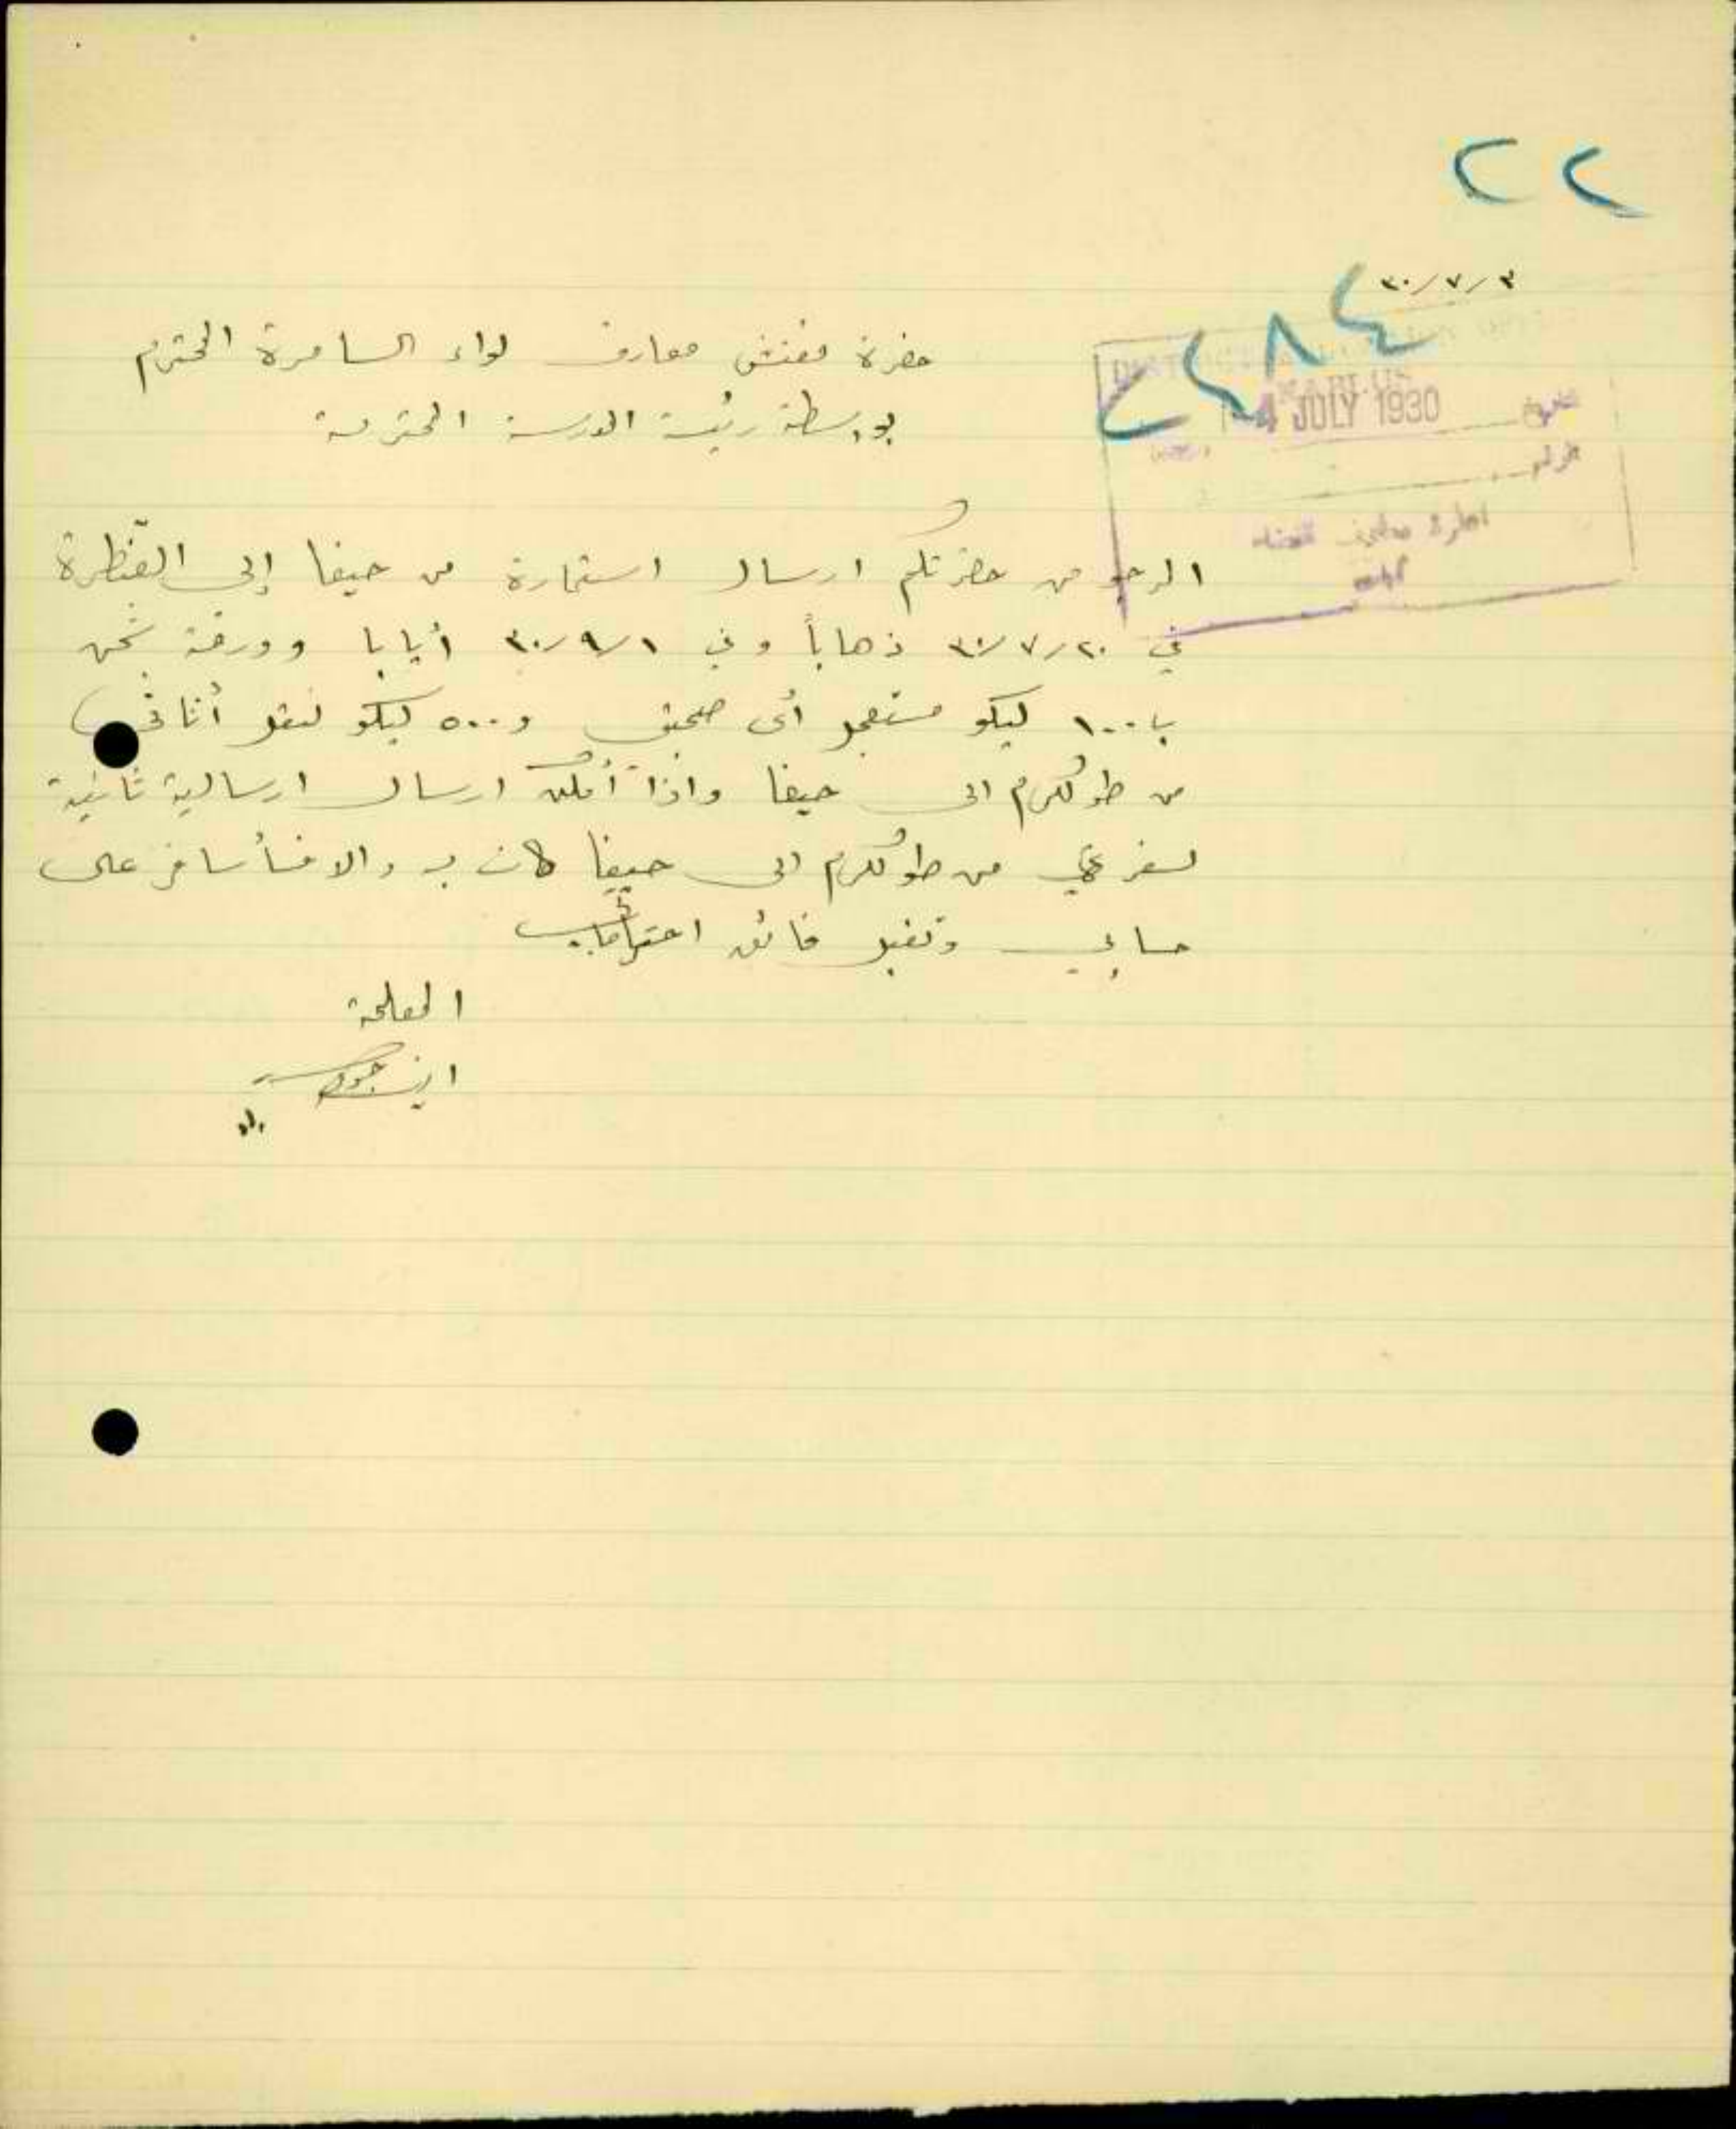 ٢٢
٣٠/٧/٣
٢٤٨٤
DISTRICT
NABLUS
4 JULY 1930
حضرة مفتش معارف لواء السامرة المحترم
بواسطة رئيسة المدرسة المحترمة
الرجو من حضرتكم ارسال استمارة من حيفا إلى القنطرة
في ٣٠/٧/٢٠ ذهاباً وفي ٣٠/٩/١ أيابا وورقة شحن
ب ١٠٠ كيلو مستعجل أي صحبتي و ٥٠٠ كيلو لنقل أثاثي
من طولكرم الى حيفا واذا أمكن ارسال ارسالية ثانية
لسفري من طولكرم الى حيفا كان به والا فسأسافر على
حسابي وتقبل فائق احتراماتي
المعلمة